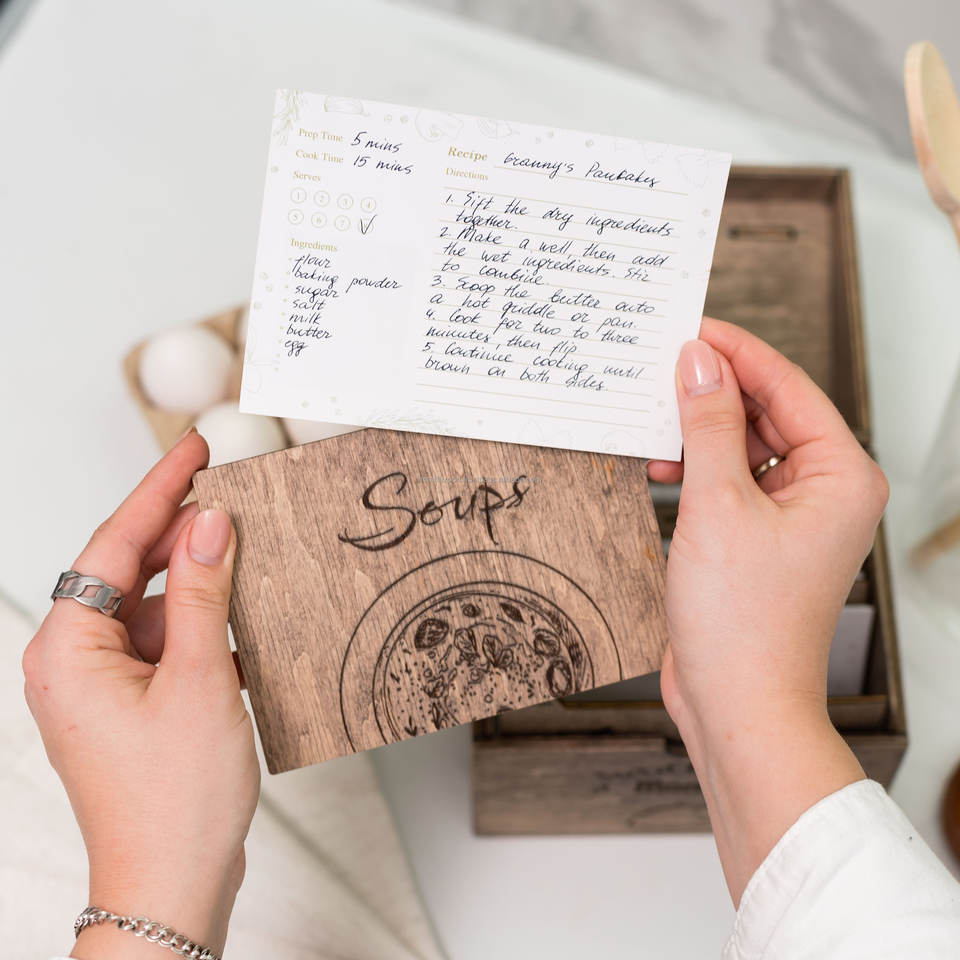 Prep Time 5 mins
Cook Time 15 mins
Serves
1 2 3 4
5 6 7 ✓
Ingredients
flour
baking powder
sugar
salt
milk
butter
egg
Recipe Granny's Pancakes
Directions
1. Sift the dry ingredients
together.
2. Make a well, then add
the wet ingredients. Stir
to combine.
3. Scoop the butter onto
a hot griddle or pan.
4. Cook for two to three
minutes, then flip
5. Continue cooking until
brown on both sides.
Soups